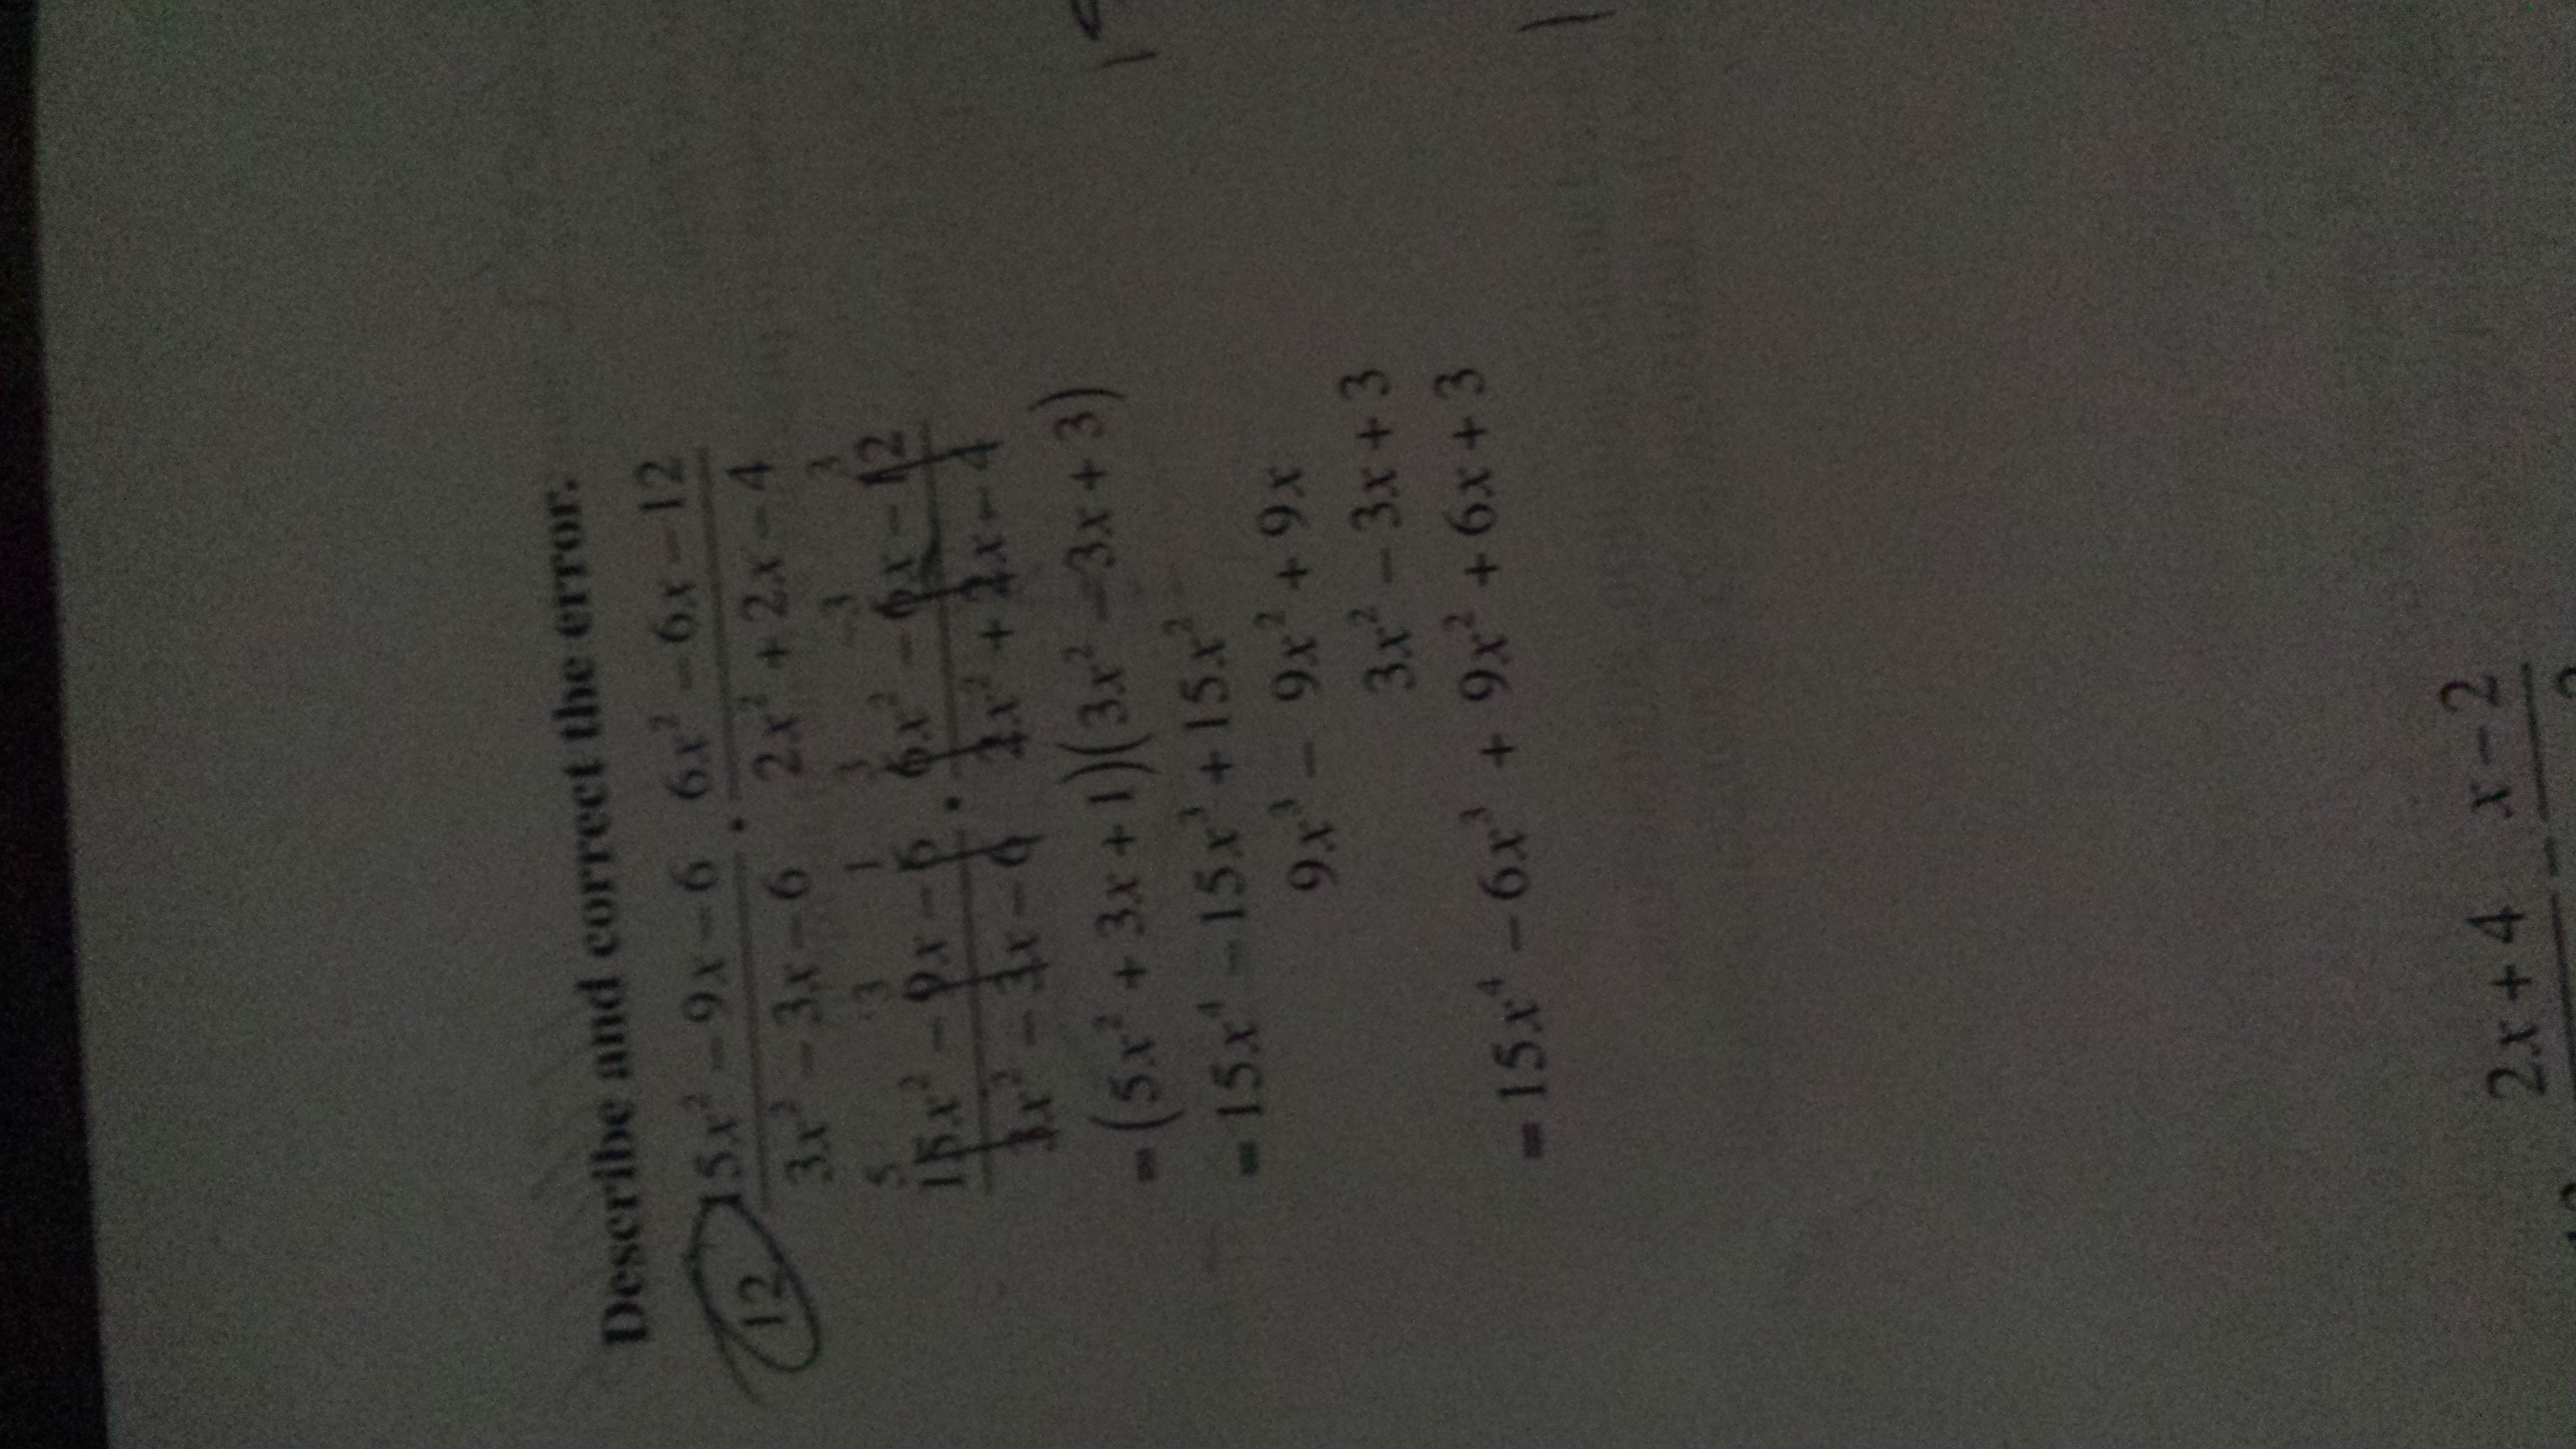 Describe and correct the error.
12 15x² - 9x - 6 6x² - 6x - 12
3x² - 3x - 6 · 2x² + 2x - 4
5 3 1 3 -3 3
15x² - 9x - 6 6x² - 6x - 12
3x² - 3x - 6 · 2x² + 2x - 4
= (5x² + 3x + 1)(3x² - 3x + 3)
= 15x⁴ - 15x³ + 15x²
9x³ - 9x² + 9x
3x² - 3x + 3
= 15x⁴ - 6x³ + 9x² + 6x + 3
2x + 4 - x - 2